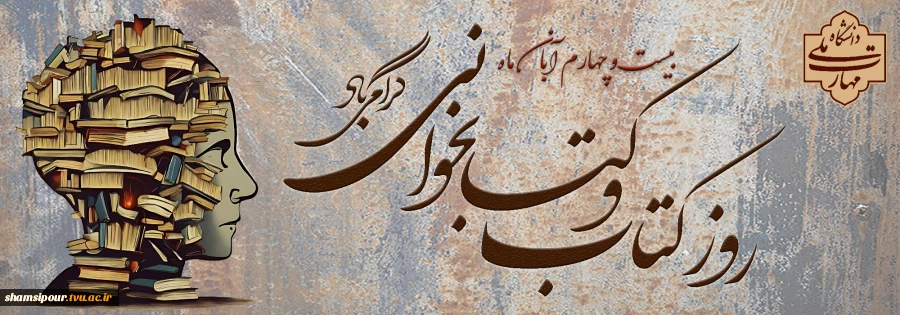 دانشگاه ملی مهارت
بیست و چهارم آبان ماه
روز کتاب و کتابخوانی
گرامی باد
shamsipour.tvu.ac.ir